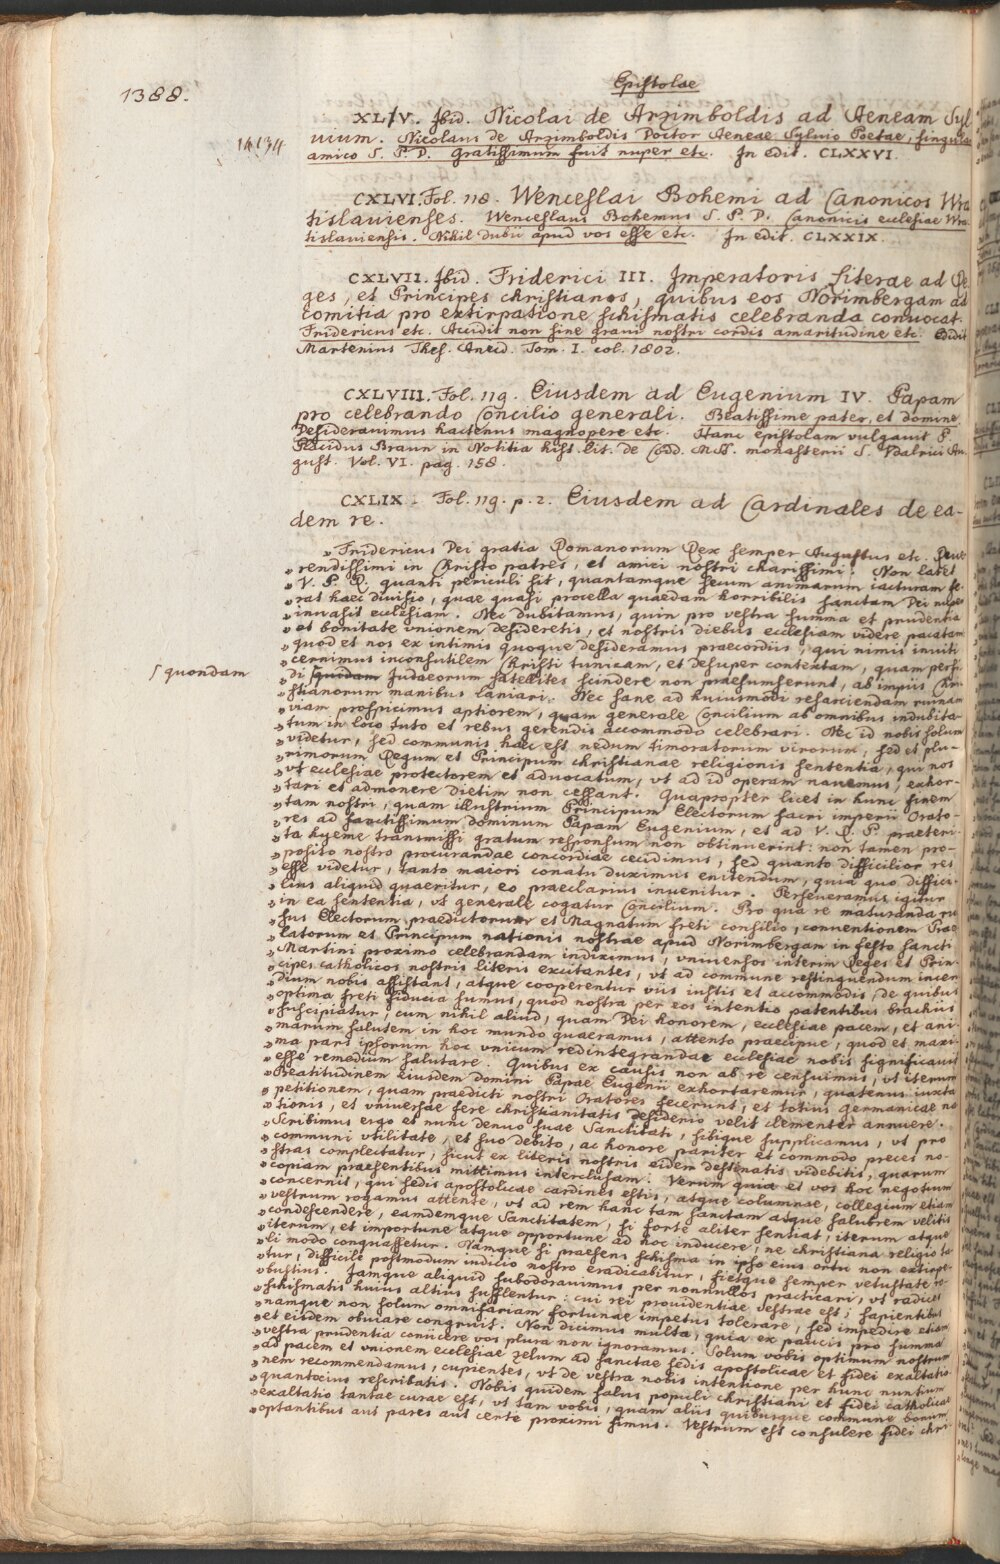 Epistolae
1388.
XLIV. Ibid. Nicolai de Arzimboldis ad Aeneam Syl
vium. Nicolaus de Arzimboldis Doctor Aeneae Sylvio Poetae, singulari
amico S. P. D. Gratissimum fuit nuper etc. In edit. CLXXVI.
CXLVI. Fol. 118. Wenceslai Bohemi ad Canonicos Wra
tislavienses. Wenceslaus Bohemus S. P. D. Canonicis ecclesiae Wra
tislaviensis. Nihil dubii apud vos esse etc. In edit. CLXXIX.
CXLVII. Ibid. Friderici III. Imperatoris literae ad Re
ges, et Principes christianos, quibus eos Norimbergam ad
comitia pro extirpatione schismatis celebranda convocat.
Fridericus etc. Accidit non sine gravi nostri cordis amaritudine etc. Edidit
Martenius Thes. Anecd. Tom. I. col. 1802.
CXLVIII. Fol. 119. Eiusdem ad Eugenium IV. Papam
pro celebrando Concilio generali. Beatissime pater, et domine
Desideravimus hactenus magnopere etc. Hanc epistolam vulgavit P.
Placidus Braun in Notitia hist. lit. de Codd. MS. monasterii S. Vdalrici Au
gust. Vol. VI. pag. 158.
CXLIX. Fol. 119. p. 2. Eiusdem ad Cardinales de ea-
dem re.
» Fridericus Dei gratia Romanorum Rex semper Augustus etc. Reve
» rendissimi in Christo patres, et amici nostri charissimi. Non latet
» V. P. R. quanti periculi sit, quantamque secum animarum iacturam fe-
» rat haec divisio, quae quasi procella quaedam horribilis sanctam Dei nuper
» invasit ecclesiam. Nec dubitamus, quin pro vestra summa et prudentia
» et bonitate vnionem desideretis, et nostris diebus ecclesiam videre pacatam
» quod et nos ex intimis quoque desideramus praecordiis, qui nimis inviti
» cernimus inconsutilem Christi tunicam, et desuper contextam, quam perfi-
» di quidam Iudaeorum satellites scindere non praesumserunt, ab impiis Chri
ſ quondam
» stianorum manibus laniari. Nec sane ad huiusmodi resarciendam ruinam
» viam prospicimus aptiorem, quam generale Concilium ab omnibus indubita
» tum in loco tuto et rebus gerendis accommodo celebrari. Nec id nobis solum
» videtur, sed communis haec est nedum timoratorum virorum, sed et plu-
» rimorum Regum et Principum christianae religionis sententia, qui nos
» vt ecclesiae protectorem et advocatum, vt ad id operam navemus, exhor-
» tari et admonere dietim non cessant. Quapropter licet in hunc finem
» tam nostri, quam illustrium Principum Electorum sacri imperii Orato-
» res ad sanctissimum dominum Papam Eugenium, et ad V. R. P. praeteri-
» ta hyeme transmissi gratum responsum non obtinuerint: non tamen pro-
» posito nostro procurandae concordiae cecidimus, sed quanto difficilior res
» esse videtur, tanto maiori conatu duximus enitendum, quia quo diffici-
» lius aliquid quaeritur, eo praeclarius invenitur. Perseveramus igitur
» in ea sententia, vt generale cogatur Concilium. Pro qua re maturanda ru
» sus Electorum praedictorum et Magnatum freti consilio, conventionem Prae
» latorum et Principum nationis nostrae apud Norimbergam in festo sancti
» Martini proximo celebrandam indiximus, vniversos interim Reges et Prin-
» cipes catholicos nostris literis excitantes, vt ad commune restinguendum incen
» dium nobis assistant, atque cooperentur viis iustis et accommodis, de quibus
» optima freti fiducia sumus, quod nostra per eos intentio patentibus brachiis
» suscipiatur, cum nihil aliud, quam Dei honorem, ecclesiae pacem, et ani-
» marum salutem in hoc mundo quaeramus, attento praecipue, quod et maxi-
» ma pars ipsorum hoc vnicum redintegrandae ecclesiae nobis significavit
» esse remedium salutare. Quibus ex causis non ab re censuimus, vt iterum
» Beatitudinem eiusdem domini Papae Eugenii exhortaremur, quatenus iuxta
» petitionem, quam praedicti nostri Oratores fecerunt, et totius Germanicae na
» tionis, et vniversae fere christianitatis desiderio velit clementer annuere.
» Scribimus ergo et nunc denuo suae Sanctitati, sibique supplicamus, vt pro
» communi vtilitate, et suo debito, ac honore pariter et commodo preces no-
» stras complectatur, sicut ex literis nostris eidem destinatis videbitis, quarum
» copiam praesentibus mittimus interclusam. Verum quia et vos hoc negotium
» concernit, qui sedis apostolicae cardines estis, atque columnae, collegium etiam
» vestrum rogamus attente, vt ad rem hanc tam sanctam atque salubrem velitis
» condescendere, eamdemque Sanctitatem, si forte aliter sentiat, iterum atque
» iterum, et importune atque opportune ad hoc inducere, ne christiana religio ta
» li modo conquassetur. Namque si praesens schisma in ipso eius ortu non extirpe-
» tur, difficile postmodum iudicio nostro eradicabitur, fietque semper vetustate ro-
» bustius. Iamque aliquid subodoravimus, per nonnullos practicari, vt radices
» schismatis huius altius suffulentur: cui rei providentiae vestrae est; sapientibus
» namque non solum omnifariam fortunae impetus tolerare, sed impedire etiam
» et eisdem obviare congruit. Non dicimus multa, quia ex paucis pro summa
» vestra prudentia coniicere vos plura non ignoramus. Solum vobis optimum nostrum
» ad pacem et vnionem ecclesiae zelum ad sanctae sedis apostolicae et fidei exaltatio
» nem recommendamus, cupientes, vt de vestra nobis intentione per hunc nuntium
» quantocius rescribatis. Nobis quidem salus populi christiani et fidei catholicae
» exaltatio tantae curae est, vt tam vobis, quam aliis quibusque commune bonum
» optantibus aut pares aut certe proximi simus. Vestrum est consulere fidei chri